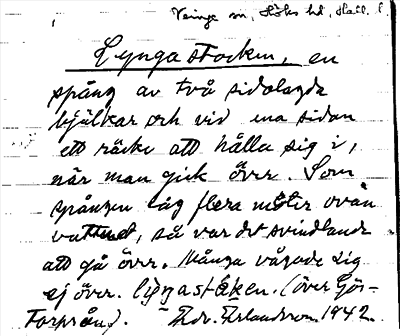 Veinge sn, Höks hd, Hall. l.
Lyngastocken, en
spång av två sidolagda
bjälkar och vid ena sidan
ett räcke att hålla sig i,
när man gick över. Som
spången låg flera meter ovan
vattnet, så var det svindlande
att gå över. Många vågade sig
ej över. lyngaståken. (över Gös-
Forprån). Fdr. Erlandsson 1942.